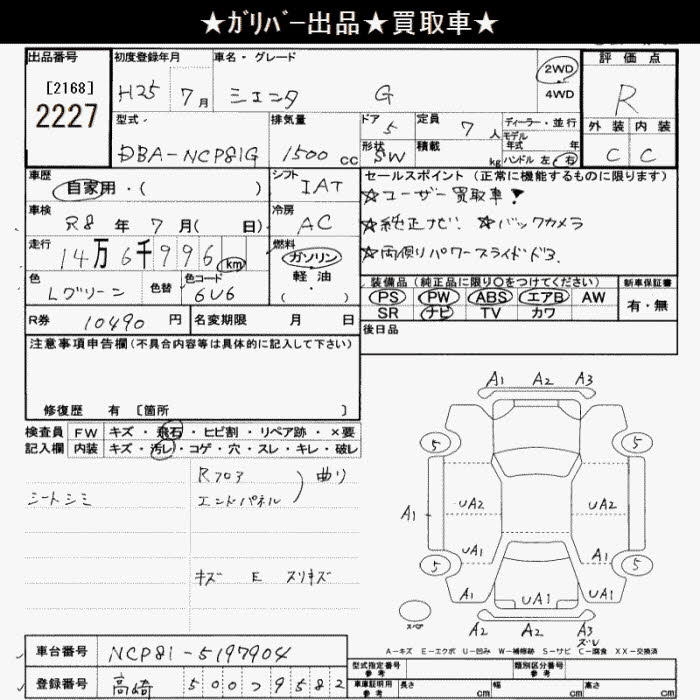 ★ｶﾞﾘﾊﾞｰ出品★買取車★
出品番号 初度登録年月 車名・グレード 2WD 評価点
[2168] H25 7月 シエンタ G 4WD R
2227 型式 排気量 ドア 定員 ディーラー・並行 外装 内装
5 7人 モデル年式 年
DBA-NCP81G 1500cc 形状 SW 積載 kg ハンドル 左・右 C C
車歴 シフト セールスポイント (正常に機能するものに限ります)
自家用・( ) IAT ☆ユーザー買取車!
車検 冷房 ☆純正ナビ ☆バックカメラ
R8年 7月( 日) AC ☆両側パワースライドドア.
走行 燃料
14万6千996km ガソリン
色 色替 色コード 軽油 装備品 (純正品に限り○をつけてください) 新車保証書
Lグリーン 6U6 ・( ) PS PW ABS エアB AW 有・無
SR ナビ TV カワ
R券 10490円 名変期限 月 日 後日品
注意事項申告欄(不具合内容等は具体的に記入して下さい)
修復歴 有 [箇所 ]
検査員 FW キズ・飛石・ヒビ割・リペア跡・×要
記入欄 内装 キズ・汚レ・コゲ・穴・スレ・キレ・破レ
シートシミ
Rフロア
エンドパネル ) 曲り
キズ E スリキズ
A1 A2 A3
5 5
UA2 UA2
A1
UA1 A1
5 5
A1 UA1 UA1
スペア A2 A2 A3
A-キズ E-エクボ U-凹み W-補修跡 S-サビ C-腐食 XX-交換済
車台番号 NCP81-5197904
登録番号 高崎 500 9582
型式指定番号 参考 類別区分番号 参考
車庫証明用 参考 長さ cm 幅 cm 高さ cm